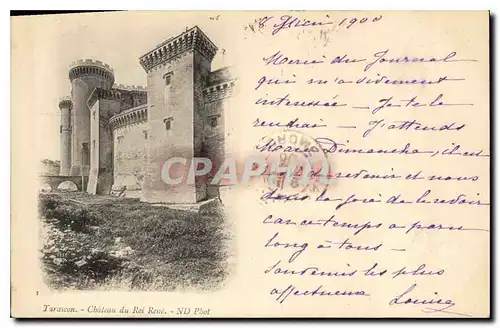 1900
Merci du Journal
qui m'a vivement
interessée - Je te le
rendrai - J'attends
Marie Dimanche, il est
de revenir et nous
dans la joie de le revoir
car ce temps a paru
long à tous -
Souvenirs les plus
affectueux Louise
CPA COM
1
Tarascon. - Château du Roi René. - ND Phot